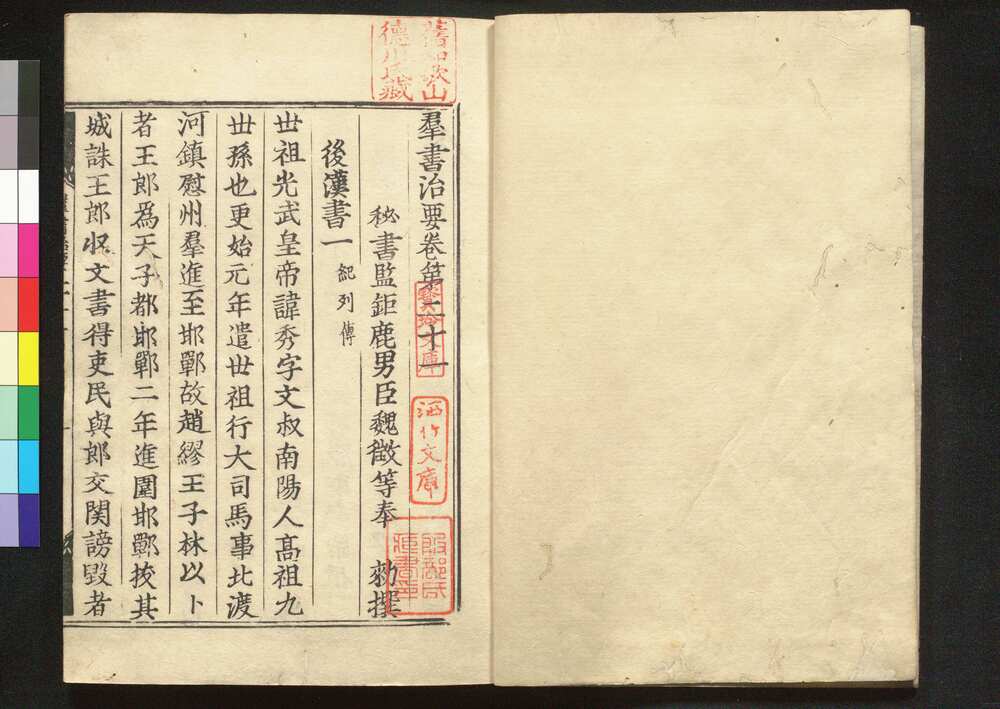 羣書治要卷第二十一
秘書監鉅鹿男臣魏徵等奉 勑撰
後漢書一 紀列傳
世祖光武皇帝諱秀字文叔南陽人高祖九
世孫也更始元年遣世祖行大司馬事北渡
河鎮慰州羣進至邯鄲故趙繆王子林以卜
者王郎爲天子都邯鄲二年進圍邯鄲拔其
城誅王郎収文書得吏民與郎交関謗毀者
舊和歌山
德川氏藏
酒竹文庫